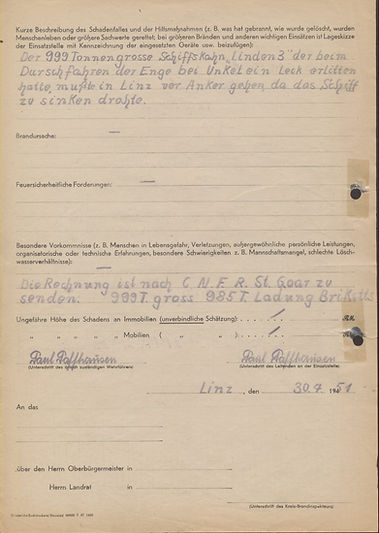 Kurze Beschreibung des Schadenfalles und der Hilfsmaßnahmen (z. B. was hat gebrannt, wie wurde gelöscht, wurden
Menschenleben oder größere Sachwerte gerettet; bei größeren Bränden und anderen wichtigen Einsätzen ist Lageskizze
der Einsatzstelle mit Kennzeichnung der eingesetzten Geräte usw. beizufügen):
Der 999 Tonnengrosse Schiffskahn „Linden 3" der beim
Durchfahren der Enge bei Unkel ein Leck erlitten
hatte, mußte in Linz vor Anker gehen da das Schiff
zu sinken drohte.
Brandursache:
Feuersicherheitliche Forderungen:
Besondere Vorkommnisse (z. B. Menschen in Lebensgefahr, Verletzungen, außergewöhnliche persönliche Leistungen,
organisatorische oder technische Erfahrungen, besondere Schwierigkeiten z. B. Mannschaftsmangel, schlechte Lösch-
wasserverhältnisse):
Die Rechnung ist nach C. N. F. R. St. Goar zu
senden. 999 T. gross 985 T. Ladung Briketts
Ungefähre Höhe des Schadens an Immobilien (unverbindliche Schätzung):
„ „ „ „ „ Mobilien ( „ „ )
Paul Paffhausen Paul Paffhausen
(Unterschrift des örtlich zuständigen Wehrführers) (Unterschrift des Leitenden an der Einsatzstelle)
Linz, den 30.7 1951
An das
über den Herrn Oberbürgermeister in
Herrn Landrat in
(Unterschrift des Kreis-Brandinspekteurs)